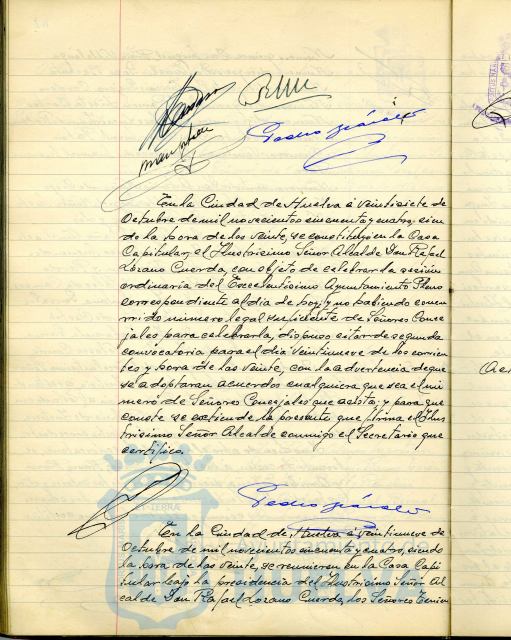 Pedro
En la Ciudad de Huelva á veintisiete de
Octubre de mil novecientos cincuenta y cuatro, sien
do la hora de las veinte, se constituyó en la Casa
Capitular, el Ilustrisimo Señor Alcalde Don Rafael
Lozano Cuerda, con objeto de celebrar la sesión
ordinaria del Excelentísimo Ayuntamiento Pleno
correspondiente al dia de hoy; y no habiendo concu
rrido número legal suficiente de Señores Conce
jales para celebrarla, dispuso citar de segunda
convocatoria para el día veintinueve de los corrien
tes y hora de las veinte, con la advertencia de que
se adoptaran acuerdos cualquiera que sea el nú
mero de Señores Concejales que asista; y para que
conste se extiende la presente que firma el Ilus
trisimo Señor Alcalde conmigo el Secretario que
certifico.
Pedro
En la Ciudad de Huelva á veintinueve de
Octubre de mil novecientos cincuenta y cuatro, siendo
la hora de las veinte, se reunieron en la Casa Capi
tular bajo la presidencia del Ilustrisimo Señor Al
calde Don Rafael Lozano Cuerda, los Señores Tenien